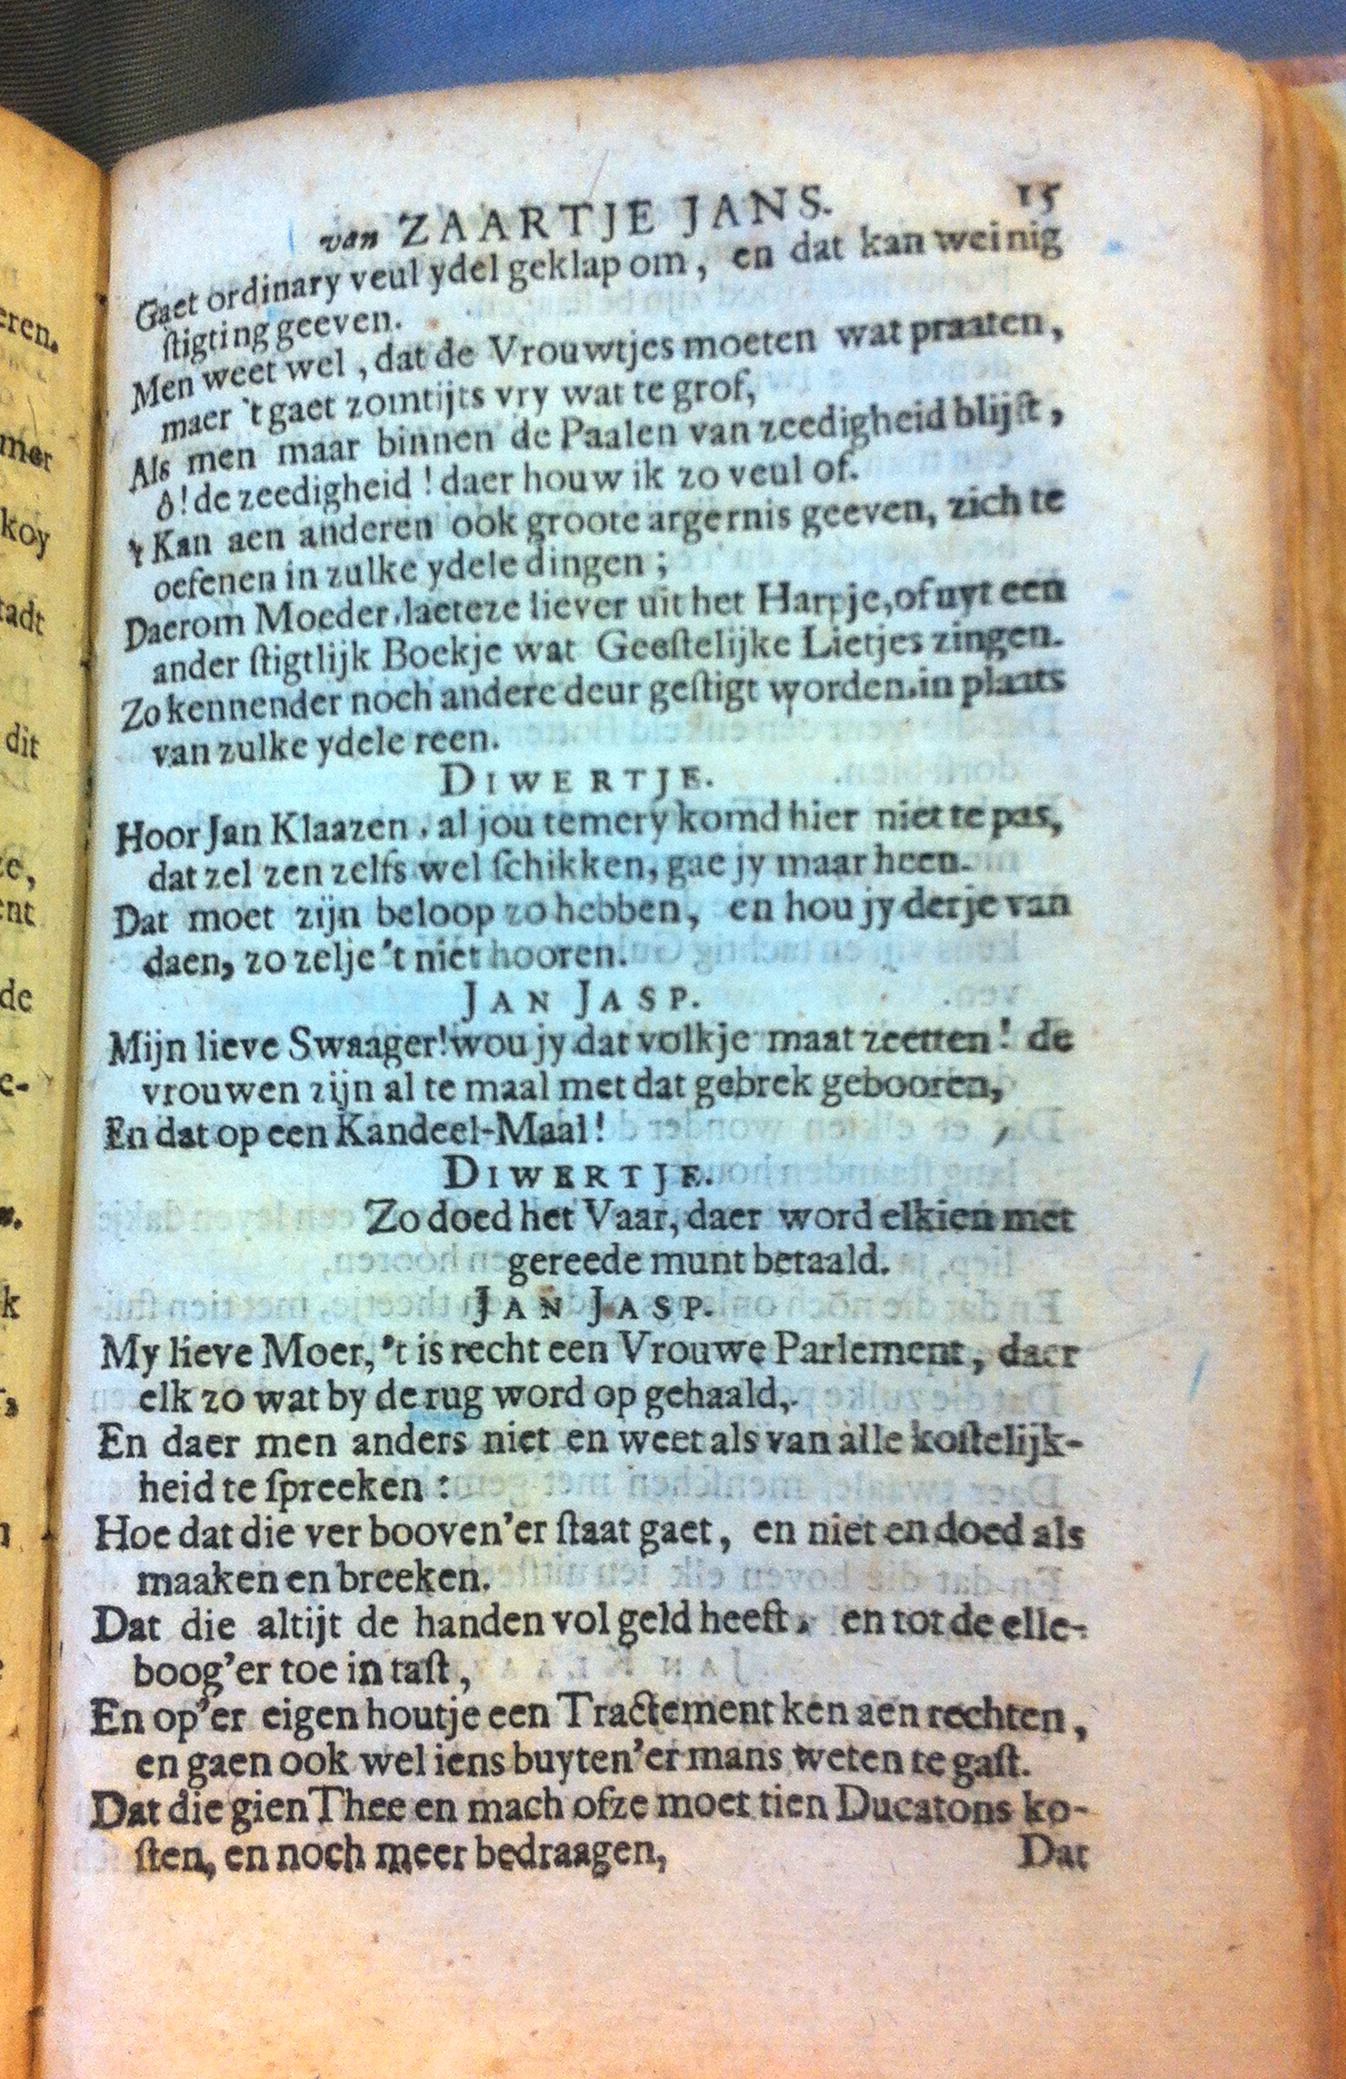 van ZAARTJE JANS. 15
Gaet ordinary veul ydel geklap om, en dat kan weinig
ſtigting geeven.
Men weet wel, dat de Vrouwtjes moeten wat praaten,
maer 't gaet zomtijts vry wat te grof,
Als men maar binnen de Paalen van zeedigheid blijft,
ô! de zeedigheid! daer houw ik zo veul of.
't Kan aen anderen ook groote argernis geeven, zich te
oefenen in zulke ydele dingen;
Daerom Moeder, laeteze liever uit het Harpje, of uyt een
ander ſtigtlijk Boekje wat Geeſtelijke Lietjes zingen.
Zo kennender noch andere deur geſtigt worden, in plaats
van zulke ydele reen.
DIWERTJE.
Hoor Jan Klaazen, al jou temery komd hier niet te pas,
dat zel zen zelfs wel ſchikken, gae jy maar heen.
Dat moet zijn beloop zo hebben, en hou jy derje van
daen, zo zelje 't niet hooren.
JAN JASP.
Mijn lieve Swaager! wou jy dat volkje maat zeetten! de
vrouwen zijn al te maal met dat gebrek gebooren,
En dat op een Kandeel-Maal!
DIWERTJE.
Zo doed het Vaar, daer word elkien met
gereede munt betaald.
JAN JASP.
My lieve Moer, 't is recht een Vrouwe Parlement, daer
elk zo wat by de rug word op gehaald,
En daer men anders niet en weet als van alle koſtelijk-
heid te ſpreeken:
Hoe dat die ver booven'er ſtaat gaet, en niet en doed als
maaken en breeken.
Dat die altijt de handen vol geld heeft, en tot de elle-
boog'er toe in taſt,
En op'er eigen houtje een Tractement ken aen rechten,
en gaen ook wel iens buyten'er mans weten te gaſt.
Dat die gien Thee en mach ofze moet tien Ducatons ko-
ſten, en noch meer bedraagen,
Dat
eren.
mer
koy
tadt
dit
ze,
ent
de
e-
k